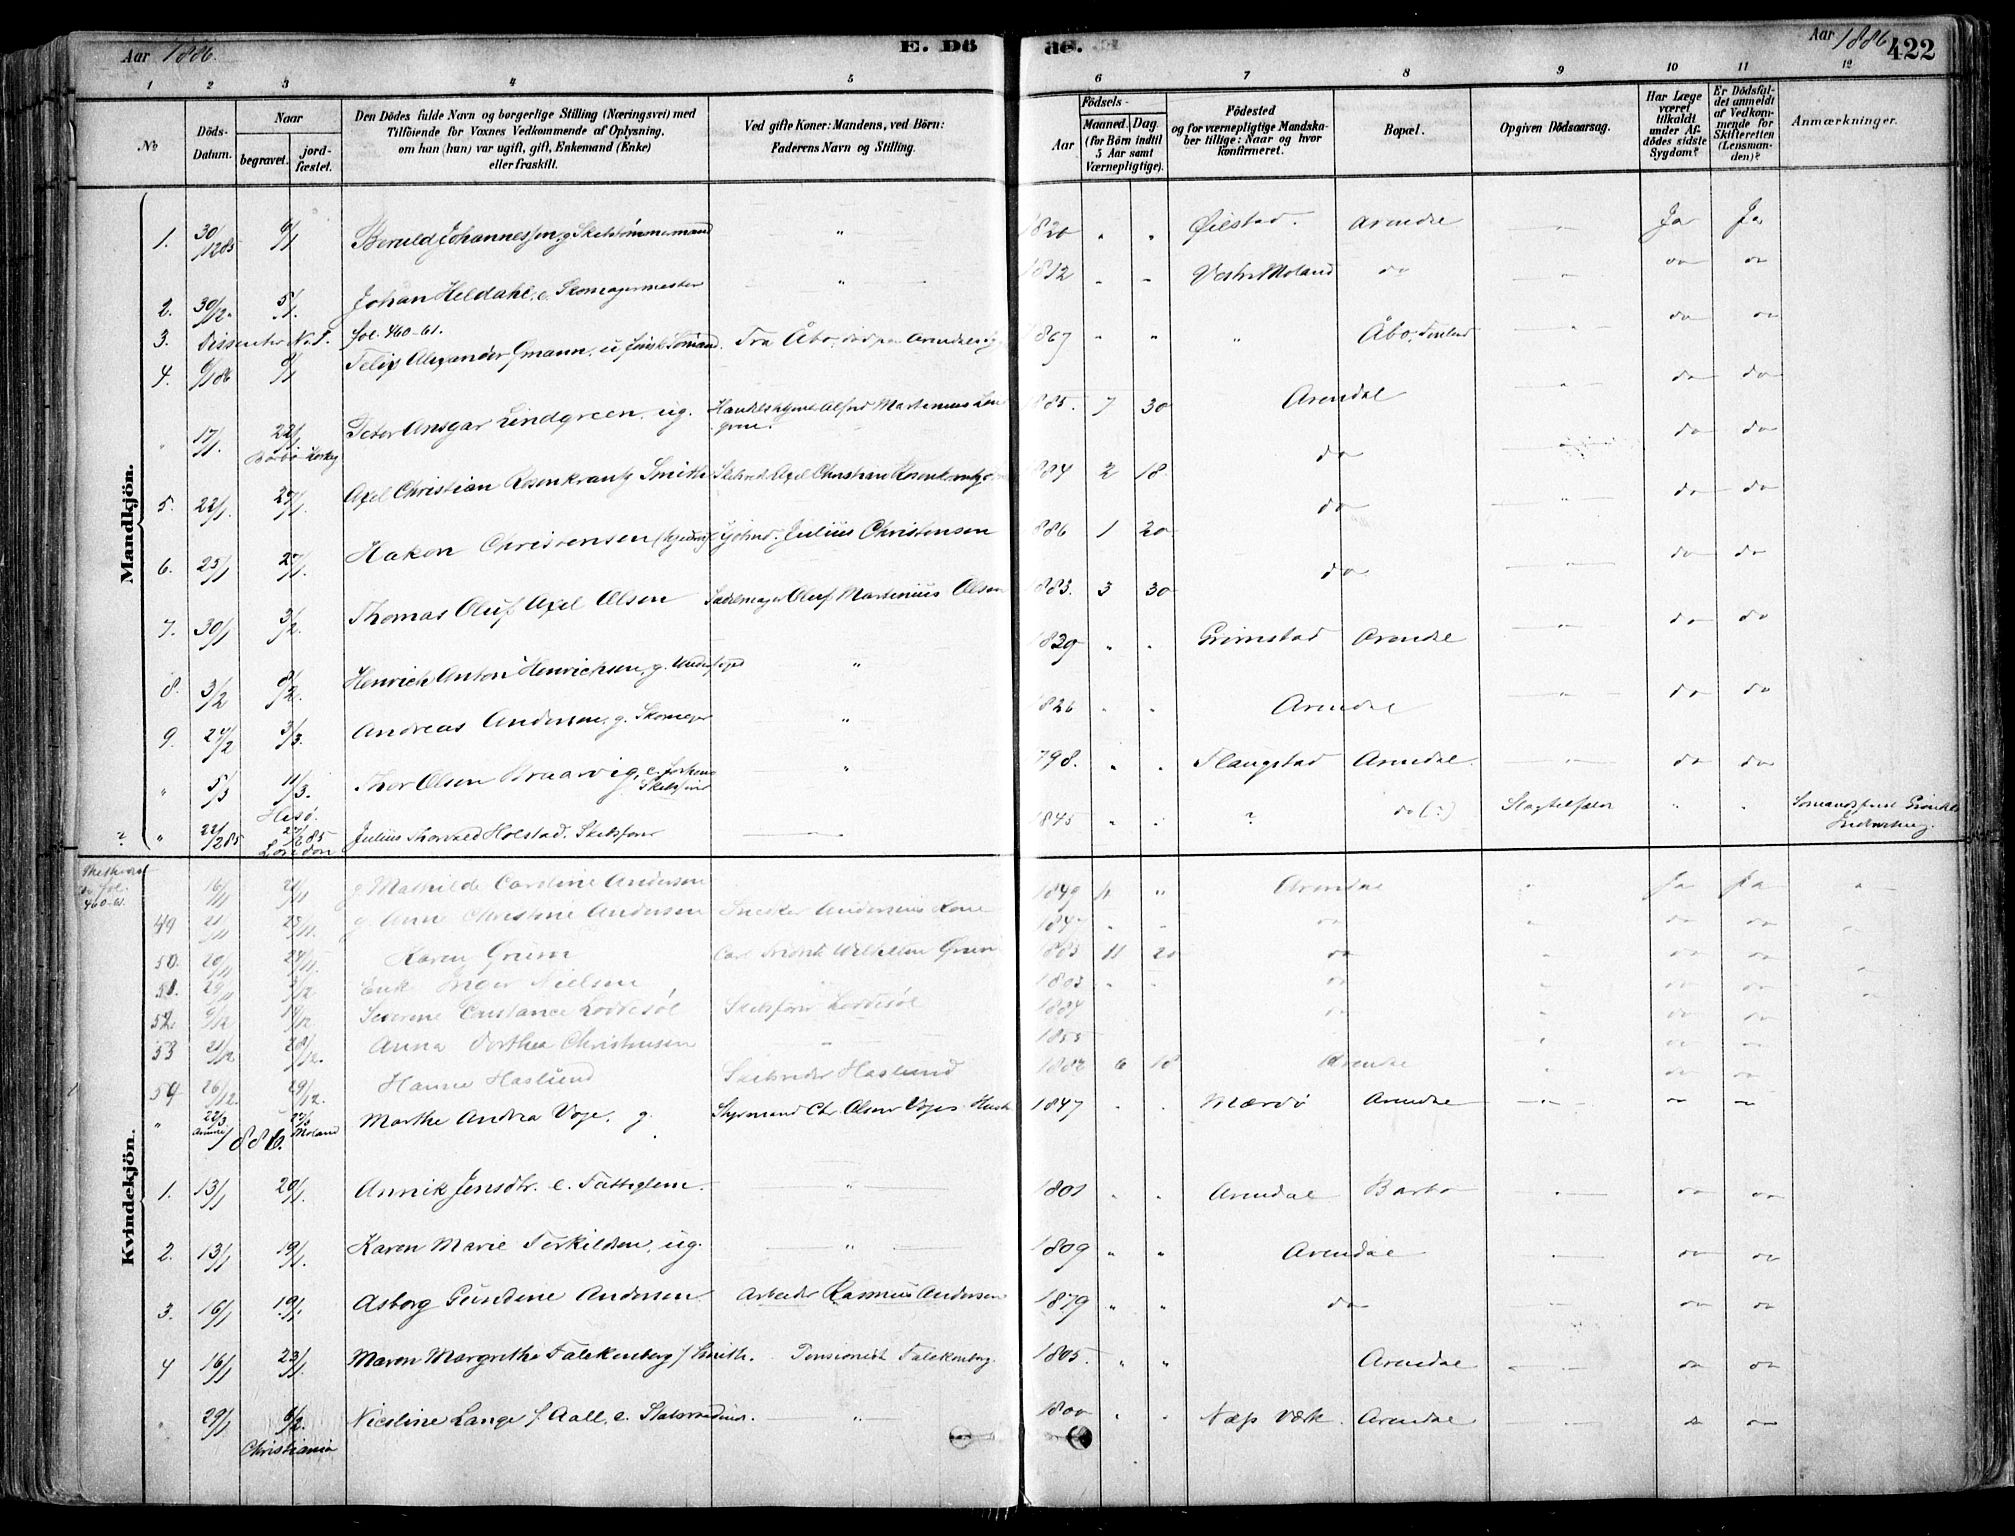 Aar 1886. E. Dö de. Aar 1886 422
1 2 3 4 5 6 7 8 9 10 11 12
No
Döds-Datum.
Naar
begravet.
jord-fæstet.
Den Dödes fulde Navn og borgerlige Stilling (Næringsvei) med
Tilföiende for Voxnes Vedkommende af Oplysning,
om han (hun) var ugift, gift, Enkemand (Enke)
eller fraskilt.
Ved gifte Koner: Mandens, ved Börn:
Faderens Navn og Stilling.
Födsels-
Aar
Maaned. Dag
(for Börn indtil
5 Aar samt
Værnepligtige).
Födested
og for værnepligtige Mandska-
ber tillige: Naar og hvor
konfirmeret.
Bopæl.
Opgiven Dödsaarsag.
Har Læge
været
tilkaldt
under Af-
dödes sidste
Sygdom?
Er Dödsfal-
det anmeldt
af Vedkom-
mende for
Skifteretten
(Lensman-
den)?
Anmærkninger.
Mandkjön.
1. 30/12 85 Johannessen, g. Skibstømmermand " 1820 " " Øiestad. Arendal " Ja Ja
2. 30/12 5/1. Johan Heldahl, e. Skomagermester " 1812 " " Vestre Moland do " do do
3. Dissenter No 1. fol. 460-61.
4. 6/1 86 Alexander u. finsk Sømand. Fra Åbo, 1867 " " " Åbo, Finland " do do
" 17/1. 22/1 Barbo Peter Ansgar Lindgreen, ug. Alfred Martinius 1885. 7 30 Arendal " do do
5. 22/1. 27/1. Axel Christian Rosenkrantz Smith Axel Christian Rosenkrantz 1884 2 18. do " do do
6. 25/1 27/1. Hakon Christensen Julius Christensen 1886 1 20 do " do do
7. 30/1 3/2. Thomas Oluf Axel Olsen Oluf Martinius Olsen 1883. 3 30 do " do do
8. 3/2 8/2. Henrich Anton Henrichsen, g. " 1829 " " Grimstad Arendal " do do
9. 27/2 3/3. Andreas Andersen, g. Skomager " 1826 " " Arendal " do do
" 5/3 11/3. Hisø. Thor Olsen Braarvig, e. Skibsfører " 1798. " " Arendal. " do do
? " 22/12 85 London Julius Thorvald Holstad. Skibsfører 1845 " " ? do (?) Slagtilfælde " "
fol. 460-61.
16/11 21/11 g Mathilde Caroline Andersen 1849 " Arendal " Ja Ja "
49 21/11 25/11. g Anne Christine Andersen Snedker Andersens Kone 1847 " " do " do do "
50. 20/11 24/11. Karen Grum Carl Wilhelm Grum 1885 11 20 do " do do
51. 29/11 3/12 Enke Inger Nielsen " 1803 " " do " do do "
52. Severine Constance Loddesøl Skibsfører Loddesøl 1884 do " do do "
53 21/12 28/12. Anna Dorthea Christensen " 1855 " do do
54 26/12. 29/12. Hanne Haslund Skibsreder Haslund 1882 6 18 Arendal " do do
" 22/3 Moland Marthe Andrea Voje, g. Styrmand Chr. Olsen Vojes Hustr. 1847 " " Mærdø Arendal " do do
1886.
Kvindekjön.
1. 13/1 20/1. Annik Jensdtr. e. Fattiglem. " 1801 " " Arendal Barbo " do do
2. 13/1 19/1. Karen Marie Terkildsen, ug. " 1809 " " Arendal " do do
3. 16/1 19/1. Asborg Gundine Andersen. Arbeider Rasmus Andersen 1879 " " do " do do
4 16/1 23/1. Maren Margrethe Falckenberg f. Smith. Pensionist Falckenberg. 1805. " " Arendal " do do
" 29/1 6/2. Christiania Nicoline Lange f. Aall, e. " 1800 " " Næs Værk. Arendal " do do